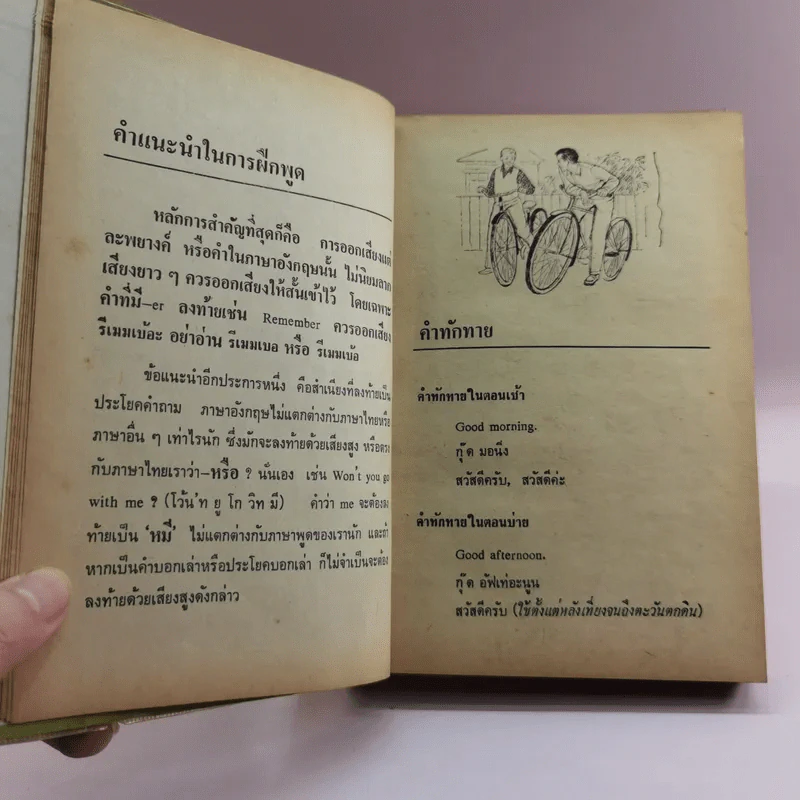 คำแนะนำในการฝึกพูด
หลักการสำคัญที่สุดก็คือ การออกเสียงแต่
ละพยางค์ หรือคำในภาษาอังกฤษนั้น ไม่นิยมลาก
เสียงยาว ๆ ควรออกเสียงให้สั้นเข้าไว้ โดยเฉพาะ
คำที่มี–er ลงท้ายเช่น Remember ควรออกเสียง
รีเมมเบ้อะ อย่าอ่าน รีเมมเบอ หรือ รีเมมเบ้อ
ข้อแนะนำอีกประการหนึ่ง คือสำเนียงที่ลงท้ายเป็น
ประโยคคำถาม ภาษาอังกฤษไม่แตกต่างกับภาษาไทยหรือ
ภาษาอื่น ๆ เท่าไรนัก ซึ่งมักจะลงท้ายด้วยเสียงสูง หรือตรง
กับภาษาไทยเราว่า–หรือ ? นั่นเอง เช่น Won't you go
with me ? (โว้น'ท ยู โก วิท มี) คำว่า me จะต้องลง
ท้ายเป็น 'หมี' ไม่แตกต่างกับภาษาพูดของเรานัก และถ้า
หากเป็นคำบอกเล่าหรือประโยคบอกเล่า ก็ไม่จำเป็นจะต้อง
ลงท้ายด้วยเสียงสูงดังกล่าว
คำทักทาย
คำทักทายในตอนเช้า
Good morning.
กุ๊ด มอนึ่ง
สวัสดีครับ, สวัสดีค่ะ
คำทักทายในตอนบ่าย
Good afternoon.
กุ๊ด อัฟเท่อะนูน
สวัสดีครับ (ใช้ตั้งแต่หลังเที่ยงจนถึงตะวันตกดิน)